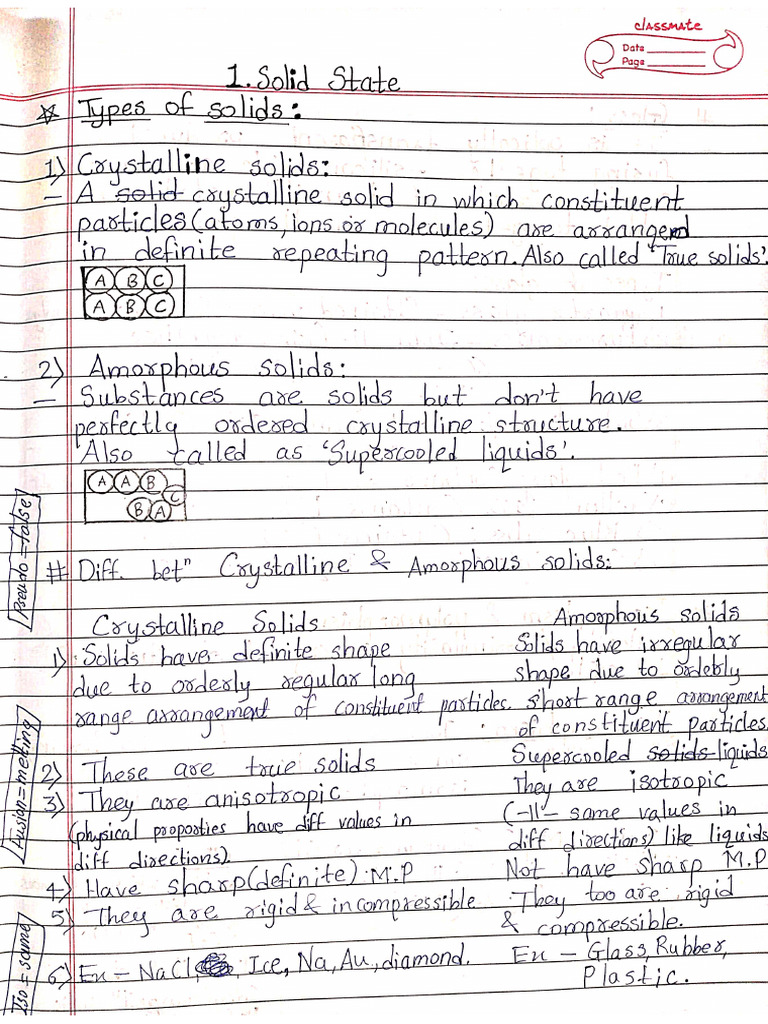 classmate
Date
Page
1. Solid State
Types of solids:
1) Crystalline solids:
- A solid crystalline solid in which constituent
particles (atoms, ions or molecules) are arranged
in definite repeating pattern. Also called 'True solids'.
A B C
A B C
2) Amorphous solids:
- Substances are solids but don't have
perfectly ordered crystalline structure.
Also called as 'Supercooled liquids'.
A A B
C
B A
Pseudo = false
# Diff. betn Crystalline & Amorphous solids:
Crystalline Solids
1) Solids have definite shape
due to orderly regular long
range arrangement of constituent particles.
2) These are true solids
3) They are anisotropic
(physical proporties have diff values in
diff directions).
4) Have sharp (definite) M.P
5) They are rigid & incompressible
6) Ex - NaCl, Ice, Na, Au, diamond.
Amorphous solids
Solids have irregular
shape due to orderly
short range arrangement
of constituent particles.
Supercooled solids liquids
They are isotropic
(-11- same values in
diff directions) like liquids
Not have sharp M.P
They too are rigid
& compressible.
Ex - Glass, Rubber,
Plastic.
Fusion = melting
Iso = same